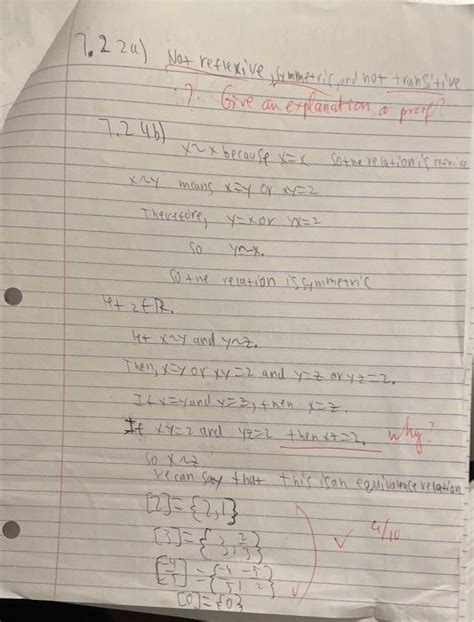 7.2 2a) Not reflexive, symmetric, and not transitive
? Give an explanation or proof?
7.2 4b)
x~x because x=x so the relation is
x~y means x=y or xy=2
Therefore, y=x or yx=2
so y~x.
so the relation is symmetric
let z∈R.
let x~y and y~z.
Then, x=y or xy=2 and y=z or yz=2.
If x=y and y=z, then x=z.
If xy=2 and yz=2 then xz=2. why?
so x~z
we can say that this is an equivalence relation
[2]={2,1}
[3]={3,2/3}
4/10
[0]={0}